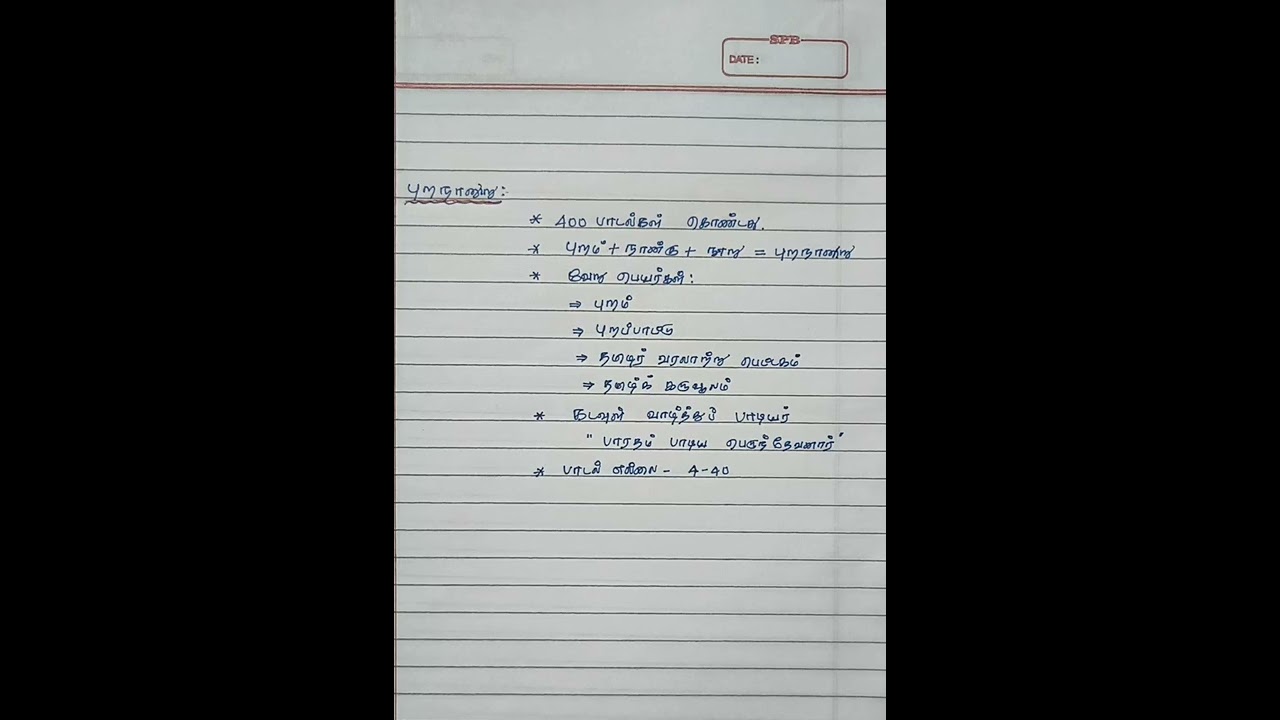 SPB
DATE:
புறநானூறு:
* 400 பாடல்கள் கொண்டது.
* புறம் + நான்கு + நூறு = புறநானூறு
* வேறு பெயர்கள்:
⇒ புறம்
⇒ புறப்பாட்டு
⇒ தமிழர் வரலாற்று பெட்டகம்
⇒ தமிழ்க் கருவூலம்
* கடவுள் வாழ்த்துப் பாடியர்
"பாரதம் பாடிய பெருந்தேவனார்"
* பாடல் எல்லை - 4-40